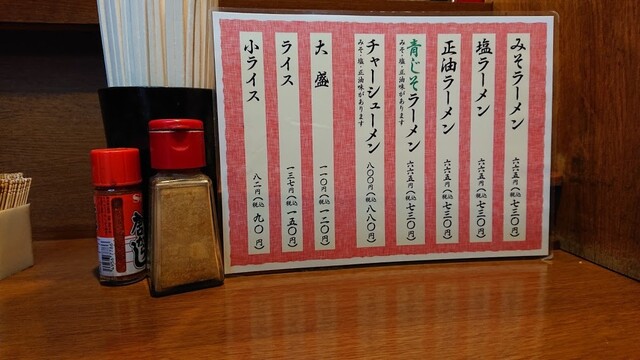 みそラーメン 六六五円(税込 七三〇円)
塩ラーメン 六六五円(税込 七三〇円)
正油ラーメン 六六五円(税込 七三〇円)
青じそラーメン 六六五円(税込 七三〇円)
みそ・塩・正油味があります
チャーシューメン 八〇〇円(税込 八八〇円)
みそ・塩・正油味があります
大盛 一一〇円(税込 一二〇円)
ライス 一三七円(税込 一五〇円)
小ライス 八二円(税込 九〇円)
S&B